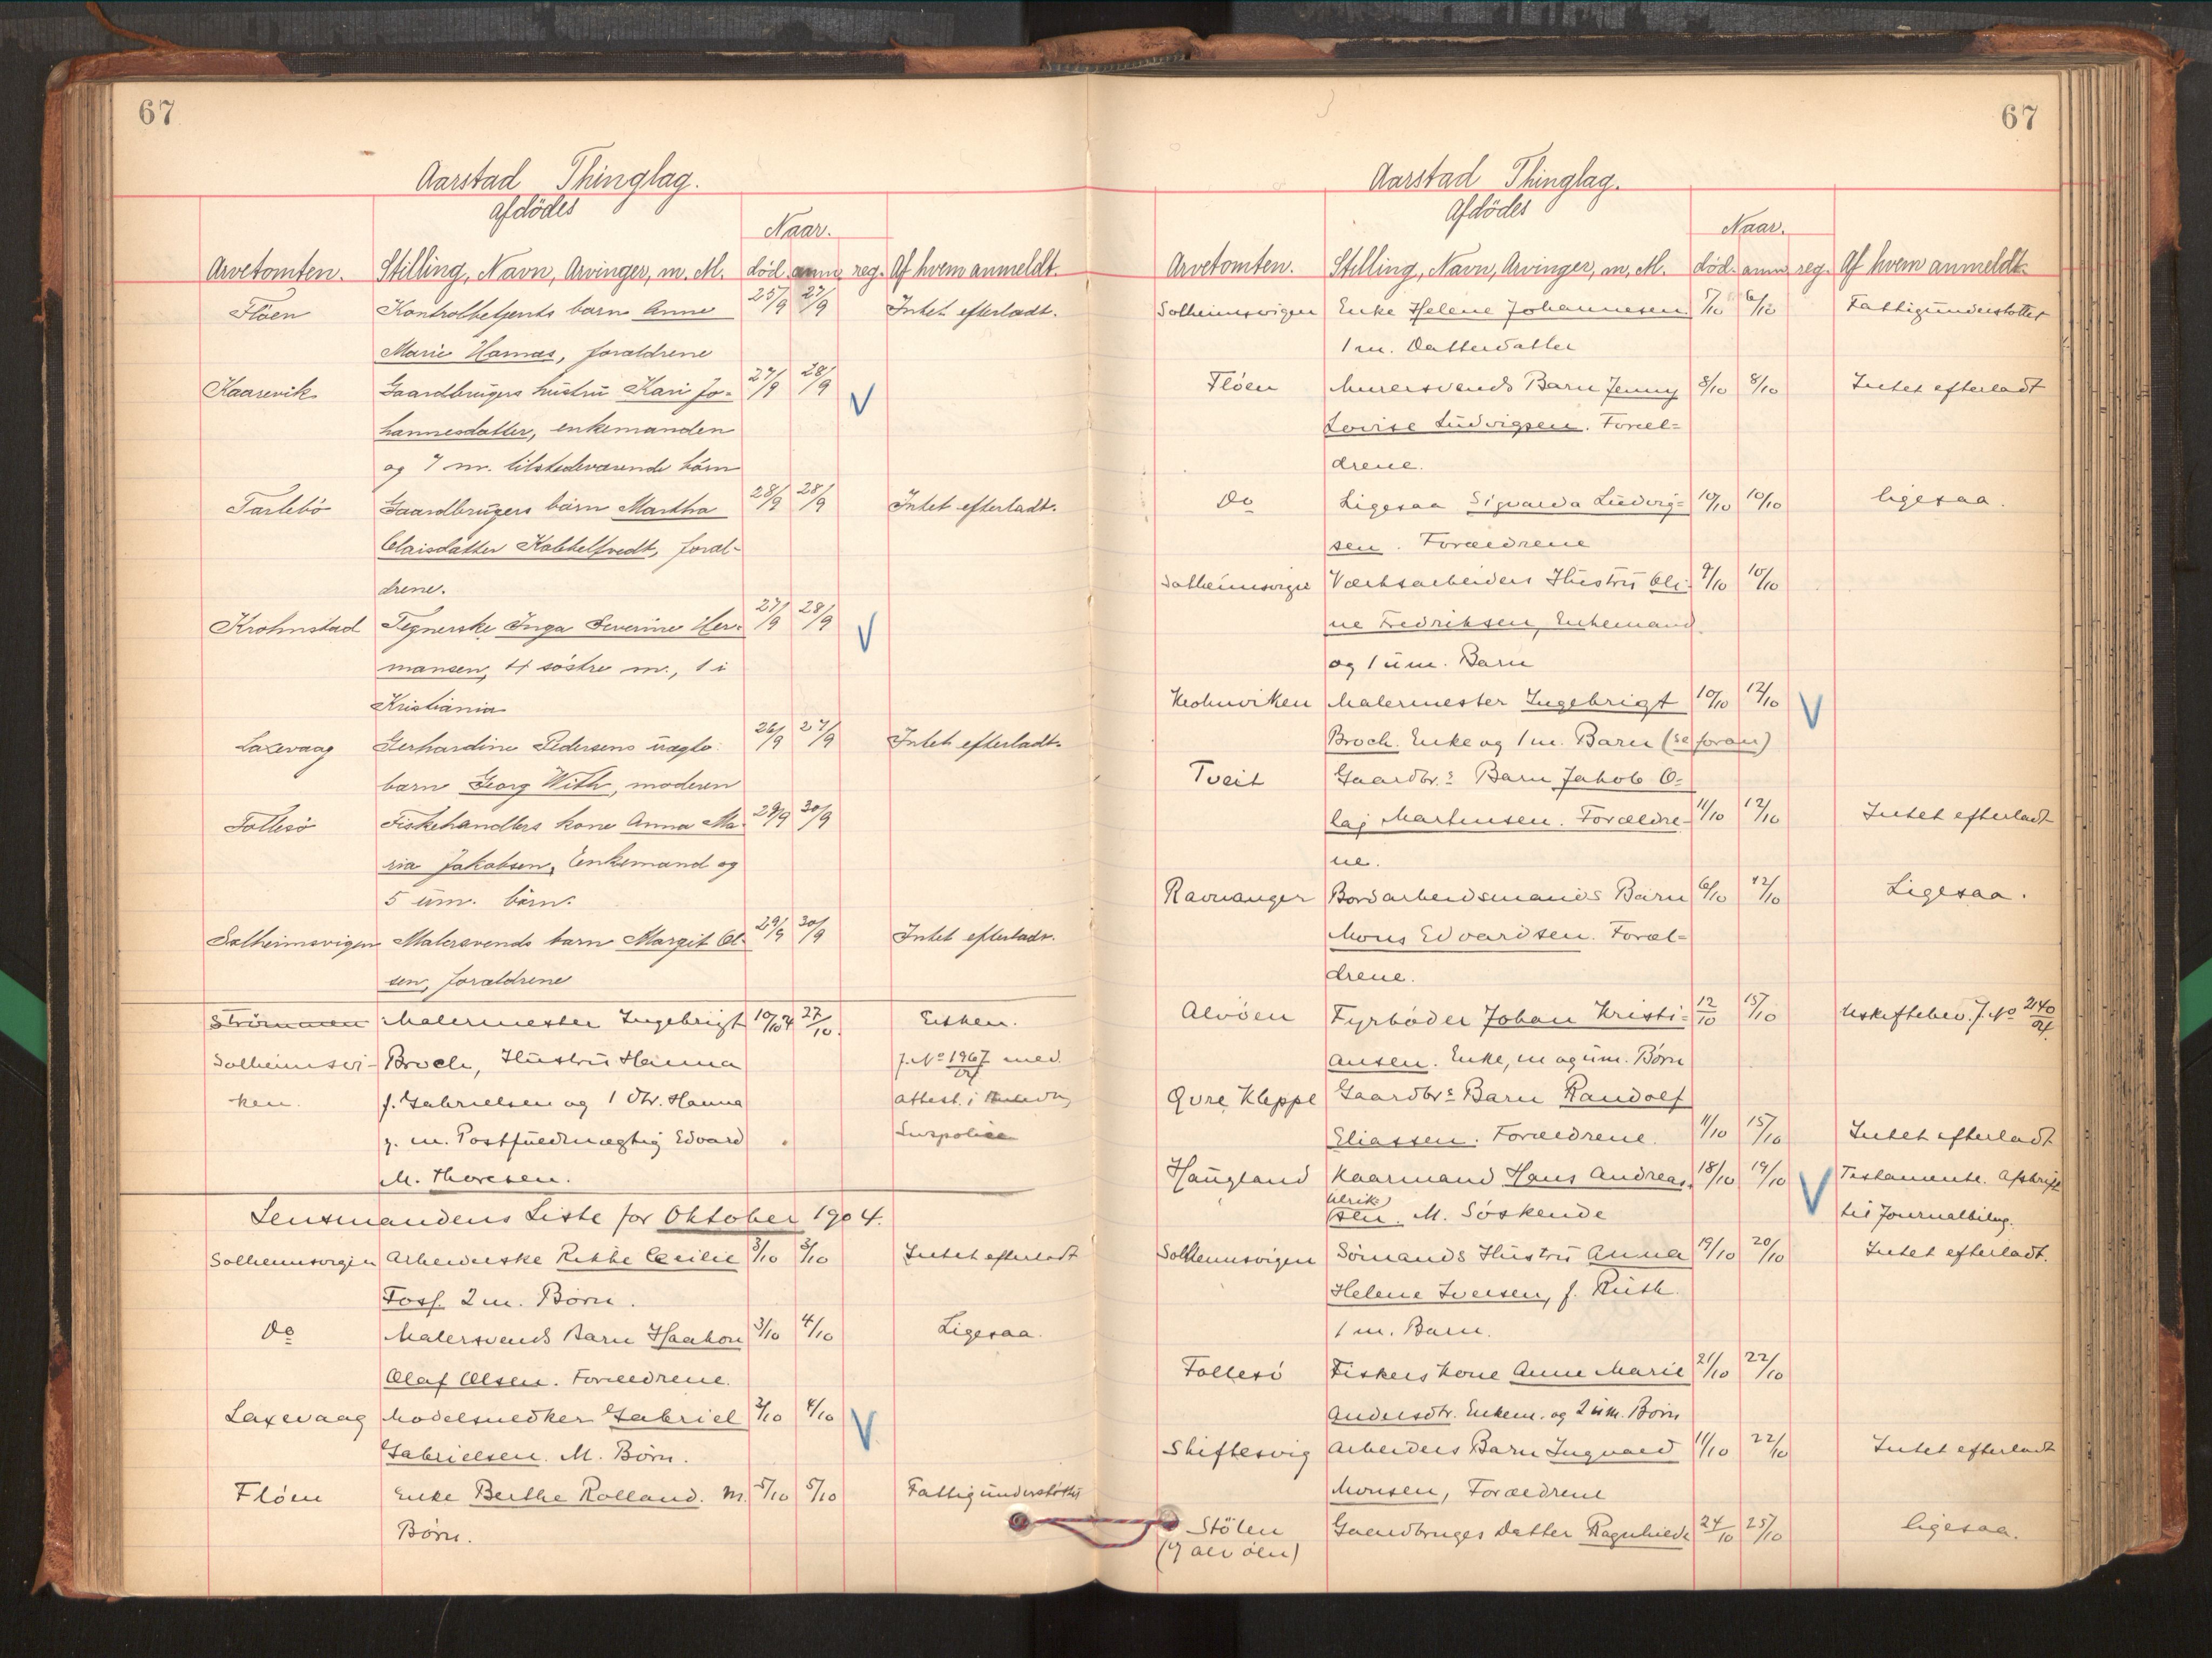 67
Aarstad Thinglag.
Afdödes
Naar.
Arvetomten. Stilling, Navn, Arvinger, m. M. död. anm. reg. Af hvem anmeldt.
Flöen Kontrolbetjents barn Anne 25/9 27/9 Intet efterladt.
Marie Hamas, forældrene
Kaarevik Gaardbrugers hustru Kari Jo- 27/9 28/9 V
hannesdatter, enkemanden
og 7 m. tilstedeværende börn
Tartebö Gaardbrugers barn Martha 28/9 28/9 Intet efterladt.
Claisdatter Kobbeltvedt, foræl-
drene.
Krohnstad Tegnerske Inga Severine Her- 27/9 28/9 V
mansen, 4 söstre m., 1 i
Kristiania
Laxevaag Gerhardine Pedersens uægte 26/9 27/9 Intet efterladt.
barn Georg With, moderen
Follesö Fiskehandlers kone Anna Ma- 29/9 30/9
ria Jakobsen, Enkemand og
5 um. börn.
Solheimsvigen Malersvends barn Margit Ol- 29/9 30/9 Intet efterladt.
sen, forældrene
Strömmen Malermester Ingebrigt 10/10 4 27/10. Enken.
Solheimsvi- Broch, Hustru Hanna J. No 1967/04 med
ken. f. Gabrielsen og 1 Dtr. Hanna attest i
g. m. Postfuldmægtig Edvard
M. Thoresen.
Lensmandens Liste for Oktober 1904.
Solheimsvigen Arbeiderske Rebbe Cecilie 3/10 3/10 Intet efterladt
Foss. 2 m. Børn.
Do Malersvends Barn Haakon 3/10 4/10 Ligesaa.
Olaf Olsen. Forældrene.
Laxevaag Modelsnedker Gabriel 2/10 4/10 V
Gabrielsen. M. Børn.
Flöen Enke Berthe Rolland. M. 5/10 5/10 Fattigunderstöttet
Børn.
67
Aarstad Thinglag.
Afdödes
Naar.
Arvetomten. Stilling, Navn, Arvinger, m. M. död. anm. reg. Af hvem anmeldt.
Solheimsvigen Enke Helene Johannesen 5/10 6/10 Fattigunderstottet
1 m. Datterdatter
Flöen Murersvends Barn Jenny 8/10 8/10 Intet efterladt
Lovise Ludvigsen. Foræl-
drene.
Do Ligesaa Sigvarda Ludvig- 10/10 10/10 ligesaa.
sen. Forældrene
Solheimsvigen Værksarbeiders Hustru Oli- 9/10 10/10
ne Fredriksen, Enkemand
og 1 um. Barn
Krohnviken Malermester Ingebrigt 10/10 12/10 V
Broch. Enke og 1 m. Barn (se foran)
Tveit Gaardbr.s Barn Jakob O-
laj Martinsen. Forældre- 11/10 12/10 Intet efterladt
ne.
Ravnanger Bordarbeidsmands Barn 6/10 12/10 Ligesaa.
Mons Edvardsen. Foræl-
drene.
Alvöen Fyrböder Johan Kristi- 12/10 15/10 Uskiftebev. J. No 2140/04.
ansen. Enke, m og um. Børn
Qvre Kleppe Gaardbrs Barn Randolf
Eliassen. Forældrene. 11/10 15/10 Intet efterladt
Haugland Kaarmand Hans Andreas 18/10 19/10 V Testamente. Afskrift
Ulrik
sen. M. Söskende til Journalbilag.
Solheimsvigen Sömands Hustru Anna 19/10 20/10 Intet efterladt.
Helene Iversen, f. Ruth
1 m. Barn.
Follesö Fiskers Kone Anne Marie 21/10 22/10
Andersdtr. Enkem. og 2 um. Börn
Skiftesvig Arbeiders Barn Ingvard 11/10 22/10 Intet efterladt
Monsen, Forældrene
Stölen Gaardbruges Datter Ragnhild 24/10 25/10 ligesaa.